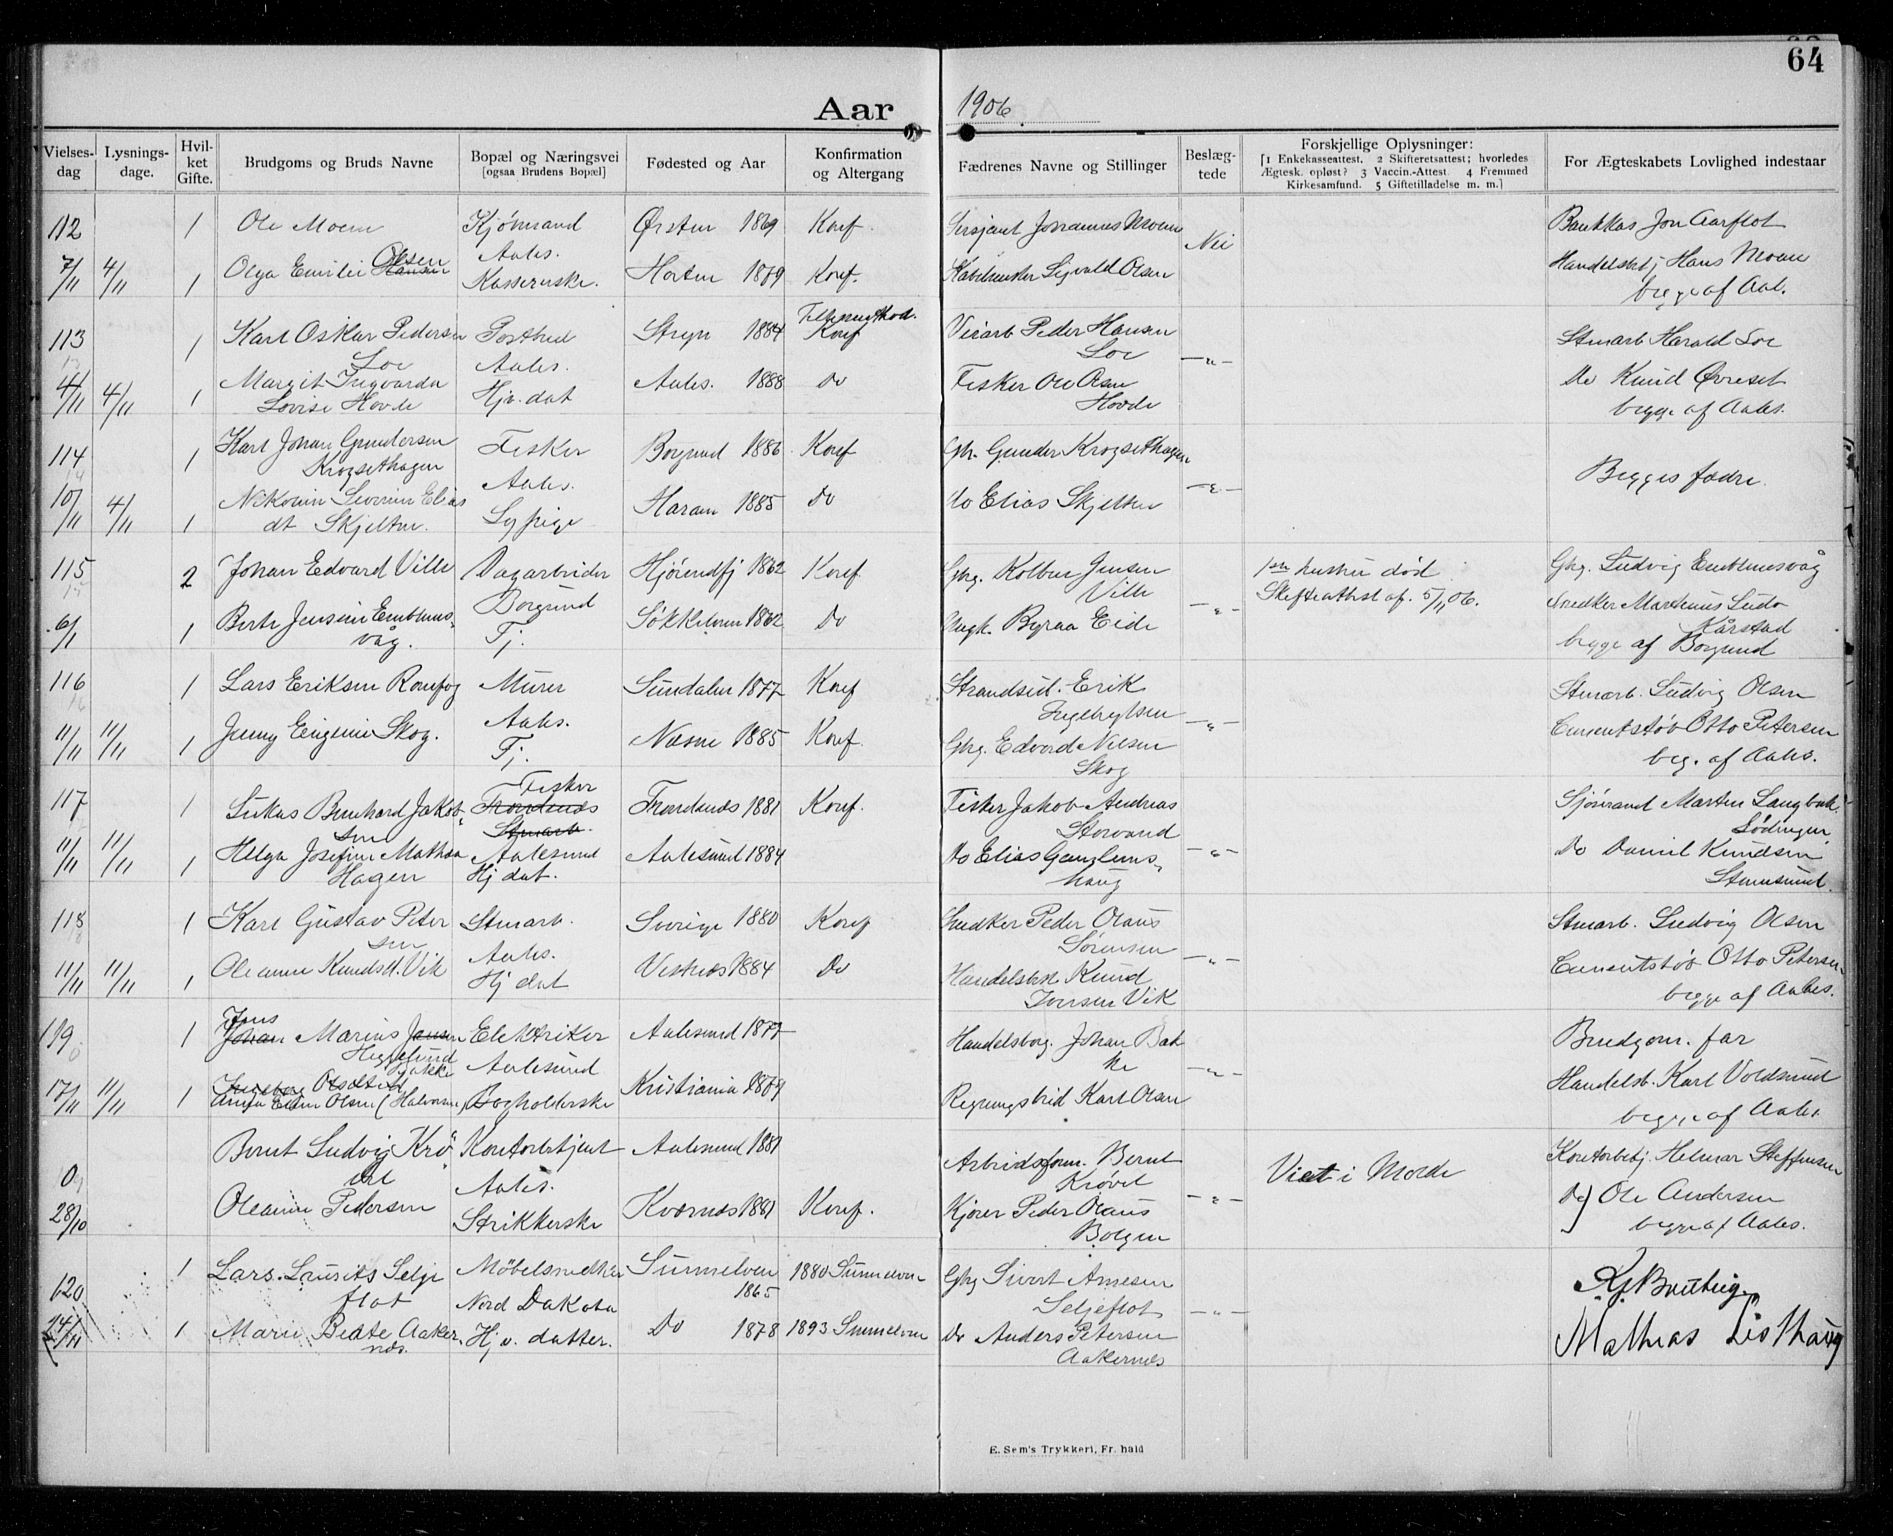 64
Aar 1906
Vielses-dag
Lysnings-dage.
Hvil-ket Gifte.
Brudgoms og Bruds Navne
Bopæl og Næringsvei [ogsaa Brudens Bopæl]
Fødested og Aar
Konfirmation og Altergang
Fædrenes Navne og Stillinger
Beslæg-tede
Forskjellige Oplysninger: [1 Enkekasseattest. 2 Skifteretsattest; hvorledes Ægtesk. opløst? 3 Vaccin.-Attest. 4 Fremmed Kirkesamfund. 5 Giftetilladelse m. m.]
For Ægteskabets Lovlighed indestaar
112 1 Ole Moen Kjøbmand Ørsten 1869 Konf. Sersjant Johannes Moen Nei Bankkas Jon Aarflot
Aales.
7/11 4/11 1 Olga Emilie Hansen Olsen Kassererske. Horten 1879 Konf. Sigvald Olsen Handelsbetj Hans Moen
begge af Aal.
113 1 Karl Oskar Pedersen Postbud Stryn 1884 Konf Peder Hansen Stuarb Harald Loe
Loe Aales. Loe -"-
4/11 4/11 1 Margit Ingvarda Hjv. dat Aales. 1888 Do Fisker Ole Olsen Do Knud Øvreset
Lovise Hovde Hovde begge af Aales.
114 1 Karl Johan Gundersen Fisker Borgund 1886 Konf Gbr. Gunder Krogsethagen
Krogsethagen Aales. -"- Begges fædre.
10/11 4/11 1 Nikoline Severine Elias Haram 1885 Do Do Elias Skjelten
dt Skjelten.
115 2 Johan Edvard Ville Dagarbeider Hjørendfj 1862 Konf Gbrg. Kolben Jensen 1ste hustru død Gbrg. Ludvig Emblemsvåg
Borgund Ville -"- Skifteattest af. 5/11 06. Snedker Martinus Ludv
6/1 1 Berte Jensine Emblems- Tj. Søkkelven 1862 Do Eide Kårstad
våg. begge af Borgund
116 1 Lars Eriksen Murer Sundalen 1877 Konf Strandsid. Erik Stuarb. Ludvig Olsen
Aales. Ingebrigtsen -"-
11/11 11/11 1 Jenny Eugenie Skog. Tj. Næsne 1885 Konf. Gbrg. Edvard Nielsen Cementstøb Otto Petersen
Skog beg. af Aales.
117 1 Lukas Bernhard Jakob- Fisker Trondenæs 1881 Konf. Fisker Jakob Andreas Sjømand Martin Langbak.
sen Trondenæs Stuarb. Storvand Lødingen
11/11 11/11 1 Helga Josefine Mathea Aalesund Aalesund 1884 Do Elias -"- Do Daniel Knudsen
Hagen Hj dat. haug Stamsund.
118 1 Karl Gustav Peter Stuarb. Sverige 1880 Konf Snedker Peder Olaus Stuarb. Ludvig Olsen
sen Aales. Sørensen -"-
11/11 11/11 1 Oleanne Knudsd. Vik Hj dat Vestnes 1884 Do Handelsbest. Knud Cementstøb Otto Petersen
Iversen Vik begge af Aales.
119 1 Johan Jens Marius Jensen Elektriker Aalesund 1877 Handelsborg. Johan Bak Brudgom. far
Heggelund Bakke Aalesund ke -"-
17/11 11/11 1 Ingeborg Anna Ellen Olsen (Halvorsen) Bogholderske Kristiania 1879 Karl Olsen Handelsb. Karl Voldsund
begge af Aales.
0 Bernt Ludvig Krø- Kontorbetjent Aalesund 1881 Arbeidsform. Bernt Viet i Molde Kontorbetj. Helmer Steffensen
vel Aales. Krøvel
28/10 Oleanne Pedersen Strikkerske Kvernes 1881 Konf. Kjører Peder Olaus -"- Do Ole Andersen
Bolgen begge af Aales.
120 1 Lars Laurits Selje Møbelsnedker Sunnelven 1865 1880 Sunnelven Gbrg Sivert Arnesen
flot Nord Dakota Seljeflot -"-
24/11 1 Marie Beate Aaker- Hj v. datter. Do 1878 1893 Sunnelven Do Anders Petersen Mathias Listhaug
nes. Aakernes
E. Sem's Trykkeri, Fr.hald